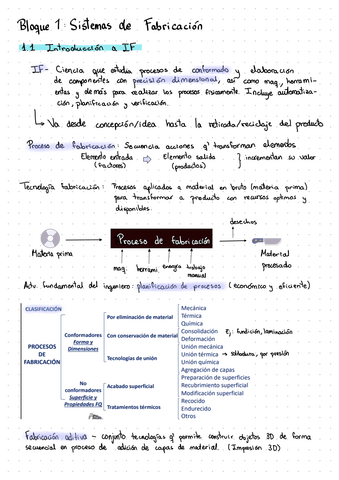 Bloque 1: Sistemas de Fabricación
1.1 Introducción a IF
IF- Ciencia que estudia procesos de conformado y elaboración
de componentes con precisión dimensional, así como maq, herrami-
entas y demás para realizar los procesos físicamente. Incluye automatiza-
ción, planificación y verificación.
Va desde concepción/idea hasta la retirada/reciclaje del producto
Proceso de fabricación: Secuencia acciones q' transforman elementos
Elemento entrada ⇨ Elemento salida } incrementan su valor
(factores) (productos)
Tecnología fabricación: Procesos aplicados a material en bruto (materia prima)
para transformar a producto con recursos óptimos y
disponibles.
desechos
Proceso de fabricación
Materia prima
Material
procesado
maq. herrami. energía trabajo
manual
Actv. fundamental del ingeniero: planificación de procesos (económico y eficiente)
CLASIFICACIÓN
PROCESOS
DE
FABRICACIÓN
Conformadores
Forma y
Dimensiones
No
conformadores
Superficie y
Propiedades FQ
Por eliminación de material
Con conservación de material
Tecnologías de unión
Acabado superficial
Tratamientos térmicos
Mecánica
Térmica
Química
Consolidación Ej: fundición, laminación
Deformación
Unión mecánica
Unión térmica → soldadura, por presión
Unión química
Agregación de capas
Preparación de superficies
Recubrimiento superficial
Modificación superficial
Recocido
Endurecido
Otros
Fabricación aditiva - conjunto tecnologías q' permite construir objetos 3D de forma
secuencial en proceso de adición de capas de material. (Impresión 3D)